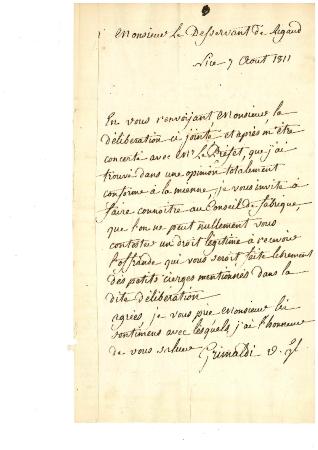 Monsieur le Desservant de Rigaud
Nice 7 Aout 1811
En vous renvoyant Monsieur la
déliberation ci jointe et après m'être
concerté avec Mr. Le Préfet, que j'ai
trouvé dans une opinion totalement
conforme à la mienne je vous invite à
faire connoitre au Conseil de fabrique
que l'on ne peut nullement vous
contester un droit légitime à recevoir
l'offrande qui vous seroit faite librement
des petits cierges mentionnés dans la
dite déliberation
agréés, je vous prie Monsieur les
sentimens avec lesquels j'ai l'honneur
de vous saluer Grimaldi v. gl